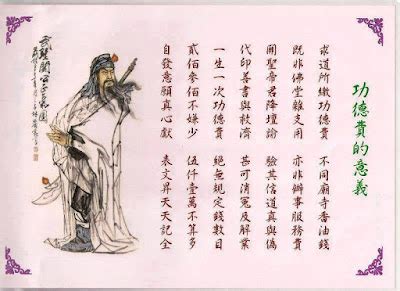 功德費的意義
求道所繳功德費　不同廟寺香油錢
既非佛堂雜支用　亦非辦事服務費
關聖帝君降壇諭　驗其信道真與偽
代印善書與救濟　甚可消冤及解業
一生一次功德費　絕無規定錢數目
貳佰參佰不嫌少　伍仟壹萬不算多
自發意願真心獻　表文昇天天記全
武聖關公正氣圖